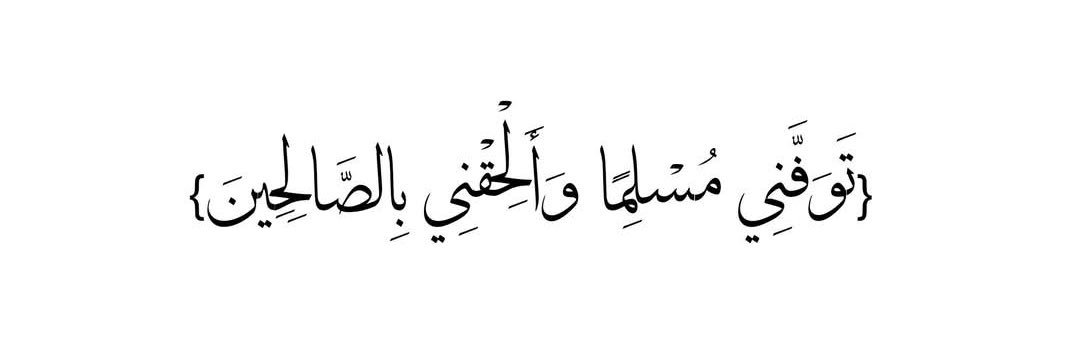 {تَوَفَّنِي مُسْلِمًا وَأَلْحِقْنِي بِالصَّالِحِينَ}